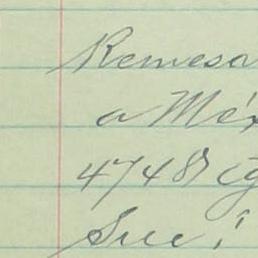 Remesa
a Méx
4748 cg
Suc!